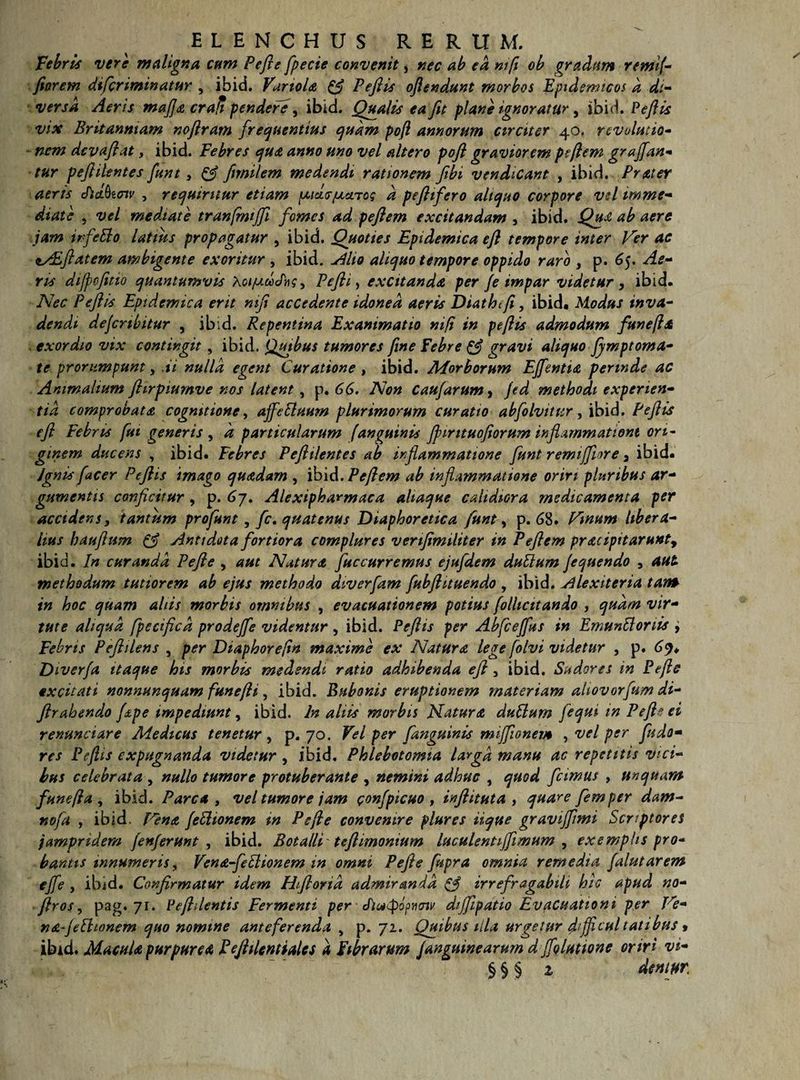 ELENCHUS RERUM.
Febris vere maligna cum Peste specie convenit, nec ab eâ nisi ob gradum remiſ-
ſiorem diſcriminatur, ibid. Variolæ & Peſtis oſtendunt morbos Epidemicos à di-
versâ Aeris maſſæ craſi pendere, ibid. Qualis ea ſit plane ignoratur, ibid. Peſtis
vix Britanniam noſtram frequentius quàm poſt annorum circiter 40. revolutio-
nem devaſtat, ibid. Febres quæ anno uno vel altero poſt graviorem peſtem graſſan-
tur peſtilentes ſunt, & ſimilem medendi rationem ſibi vendicant, ibid. Præter
aeris διάθεσιν, requiritur etiam μιάσματος à peſtifero aliquo corpore vel imme-
diatè, vel mediatè tranſmiſſi fomes ad peſtem excitandam, ibid. Quæ ab aere
jam infecto latius propagatur, ibid. Quoties Epidemica eſt tempore inter Ver ac
Æſtatem ambigente exoritur, ibid. Alio aliquo tempore oppido raro, p. 65. Ae-
ris diſpoſitio quantumvis λοιμώδης, Peſti, excitandæ per ſe impar videtur, ibid.
Nec Peſtis Epidemica erit niſi accedente idoneâ aeris Diatheſi, ibid. Modus inva-
dendi deſcribitur, ibid. Repentina Exanimatio niſi in peſtis admodum funeſtæ
exordio vix contingit, ibid. Quibus tumores ſine Febre & gravi aliquo ſymptoma-
te prorumpunt, ii nullâ egent Curatione, ibid. Morborum Eſſentiæ perinde ac
Animalium ſtirpiumve nos latent, p. 66. Non cauſarum, ſed methodi experien-
tiâ comprobatæ cognitione, affectuum plurimorum curatio abſolvitur, ibid. Peſtis
eſt Febris ſui generis, à particularum ſanguinis ſpirituoſiorum inflammatione ori-
ginem ducens, ibid. Febres Peſtilentes ab inflammatione ſunt remiſſiore, ibid.
Ignis ſacer Peſtis imago quædam, ibid. Peſtem ab inflammatione oriri pluribus ar-
gumentis conficitur, p. 67. Alexipharmaca aliaque calidiora medicamenta per
accidens, tantùm proſunt, ſc. quatenus Diaphoretica ſunt, p. 68. Vinum libera-
lius hauſtum & Antidota fortiora complures veriſimiliter in Peſtem præcipitarunt,
ibid. In curandâ Peſte, aut Naturæ ſuccurremus ejuſdem ductum ſequendo, aut
methodum tutiorem ab ejus methodo diverſam ſubſtituendo, ibid. Alexiteria tam
in hoc quam aliis morbis omnibus, evacuationem potius ſollicitando, quàm vir-
tute aliquâ ſpecificâ prodeſſe videntur, ibid. Peſtis per Abſceſſus in Emunctoriis,
Febris Peſtilens, per Diaphoreſin maximè ex Naturæ lege ſolvi videtur, p. 69.
Diverſa itaque his morbis medendi ratio adhibenda eſt, ibid. Sudores in Peſte
excitati nonnunquam funeſti, ibid. Bubonis eruptionem materiam aliovorſum di-
ſtrahendo ſæpe impediunt, ibid. In aliis morbis Naturæ ductum ſequi in Peſte ei
renunciare Medicus tenetur, p. 70. Vel per ſanguinis miſſionem, vel per ſudo-
res Peſtis expugnanda videtur, ibid. Phlebotomia largâ manu ac repetitis vici-
bus celebrata, nullo tumore protuberante, nemini adhuc, quod ſcimus, unquam
funeſta, ibid. Parca, vel tumore jam conſpicuo, inſtituta, quare ſemper dam-
noſa, ibid. Venæ ſectionem in Peſte convenire plures iique graviſſimi Scriptores
jampridem ſenſerunt, ibid. Botalli teſtimonium luculentiſſimum, exemplis pro-
bantis innumeris, Venæ-ſectionem in omni Peſte ſupra omnia remedia ſalutarem
eſſe, ibid. Confirmatur idem Hiſtoriâ admirandâ & irrefragabili hic apud no-
ſtros, pag. 71. Peſtilentis Fermenti per διαφόρησιν diſſipatio Evacuationi per Ve-
næ-ſectionem quo nomine anteferenda, p. 72. Quibus illa urgetur difficultatibus,
ibid. Maculæ purpureæ Peſtilentiales à Fibrarum ſanguinearum diſſolutione oriri vi-
§ § § 2 dentur.